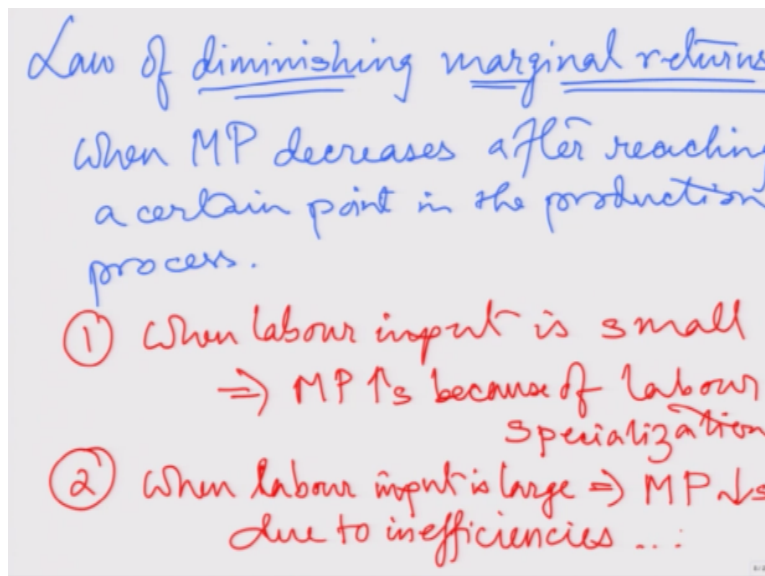 Law of diminishing marginal returns
When MP decreases after reaching
a certain point in the production
process.
① When labour input is small
⇒ MP ↑s because of labour
specialization
② When labour input is large ⇒ MP ↓s
due to inefficiencies ...